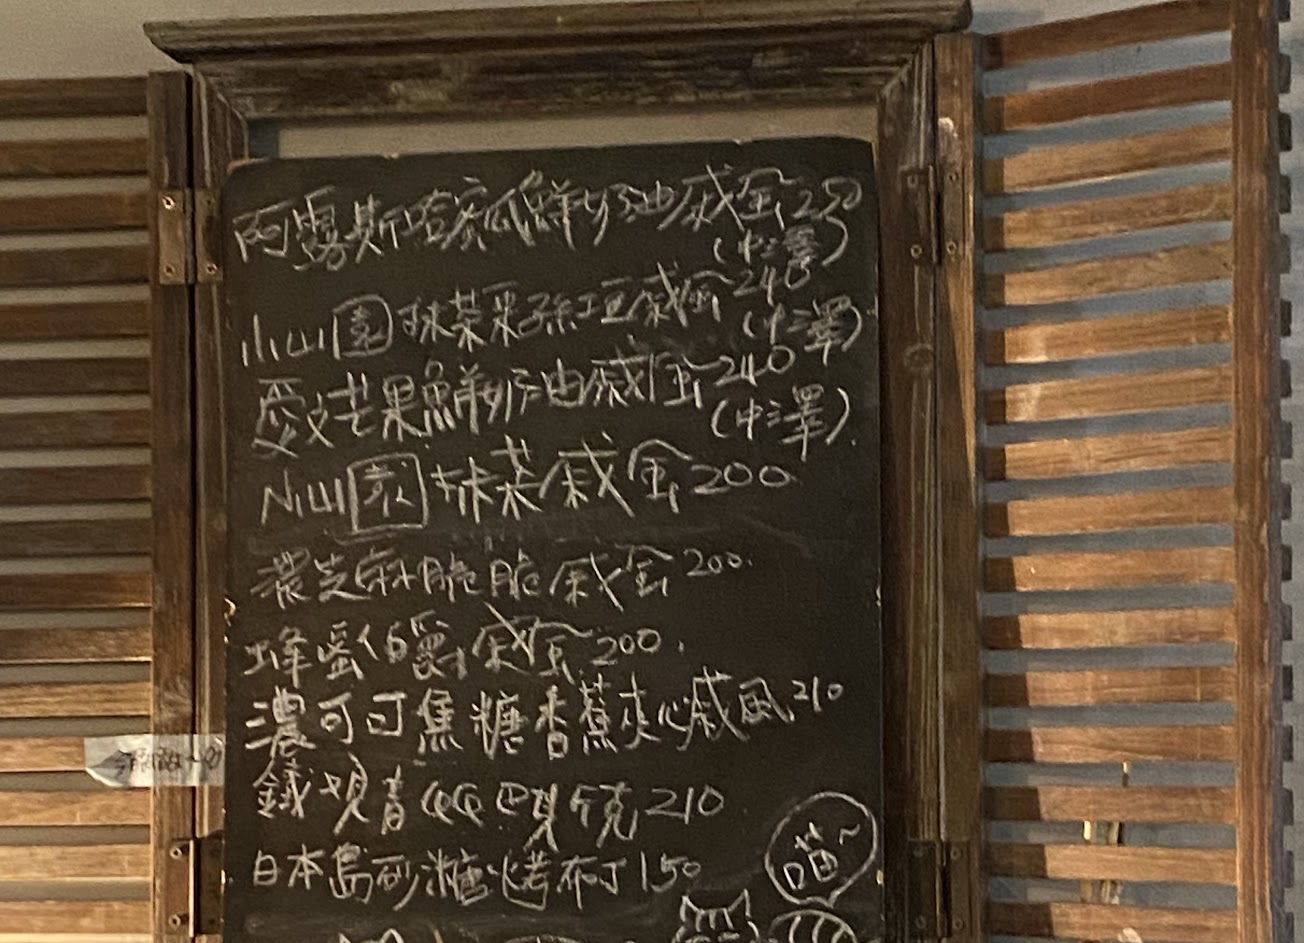 阿露斯哈蜜瓜鮮奶油戚風250
(中澤)
小山園抹茶紅豆戚風240
(中澤)
愛文芒果鮮奶油戚風240
(中澤)
小山園抹茶戚風200
濃芝麻脆脆戚風200
蜂蜜伯爵戚風200
濃可可焦糖香蕉夾心戚風210
鐵觀音QQ巴斯克210
日本島砂糖烤布丁150
喵~